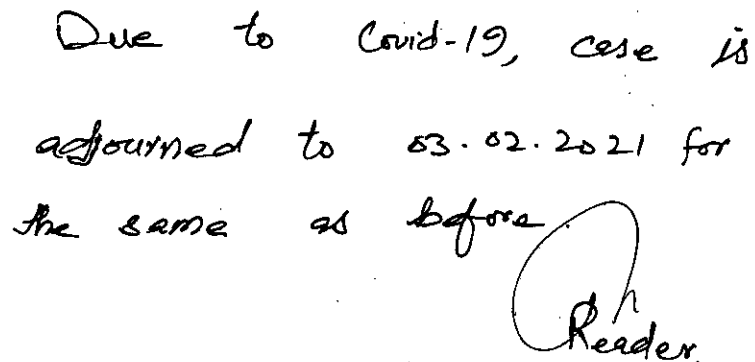 Due to Covid-19, case is
adjourned to 03.02.2021 for
the same as before.
Reader